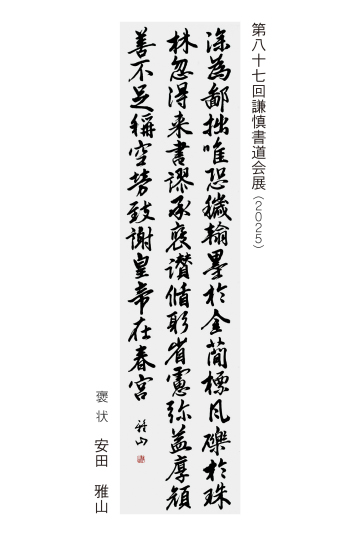 第八十七回謙慎書道会展(2025)
深為鄙拙唯恐穢翰墨於金簡標凡礫於珠
林忽得来書謬承褒讃脩躬省慮弥益厚顔
善不足稱空勞致謝皇帝在春宮
雅山
褒状 安田 雅山